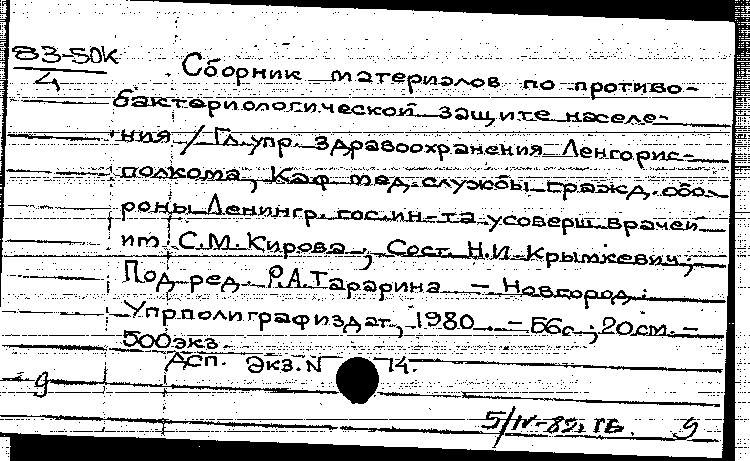 83-50к
4
Сборник материалов по противо-
бактериологической защите населе-
ния / Гл. упр. здравоохранения Ленгорис-
полкома, Каф. мед. службы гражд. обо-
роны Ленингр. гос. ин-та усоверш. врачей
им. С.М. Кирова; Сост. Н.И. Крымкевич;
Под ред. Р.А. Тарарина. - Новгород:
Упрполиграфиздат, 1980. - 56с.; 20см. -
500 экз.
ДСП. Экз. N 14.
9
5/IV-82, ГБ. 9